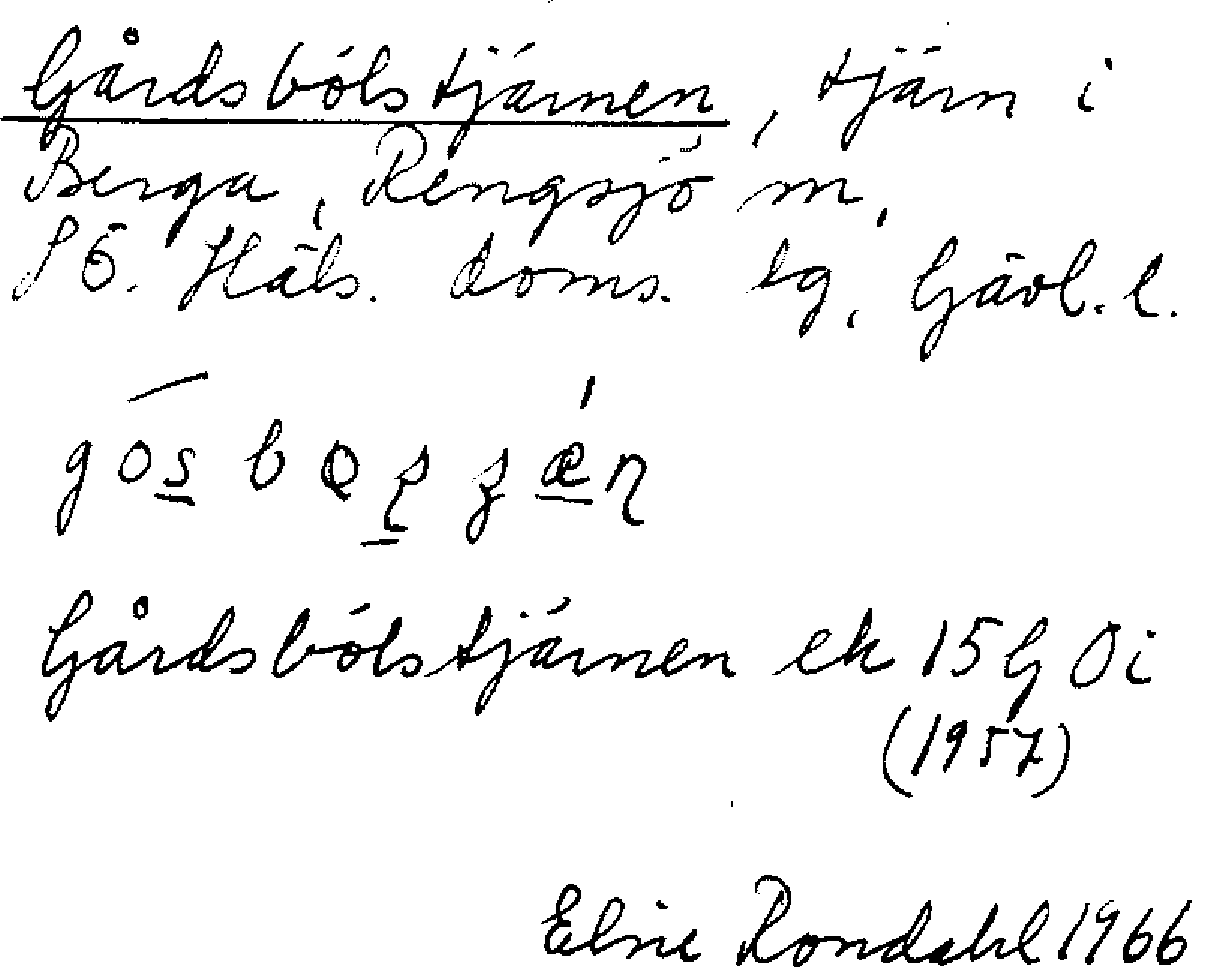 Gårdsbölstjärnen, tjärn i
Berga, Rengsjö sn,
SÖ. Häls. doms. tg, Gävl. l.
Gårdsbölstjärnen ek 15G 0i
(1957)
Elsie Rondahl 1966